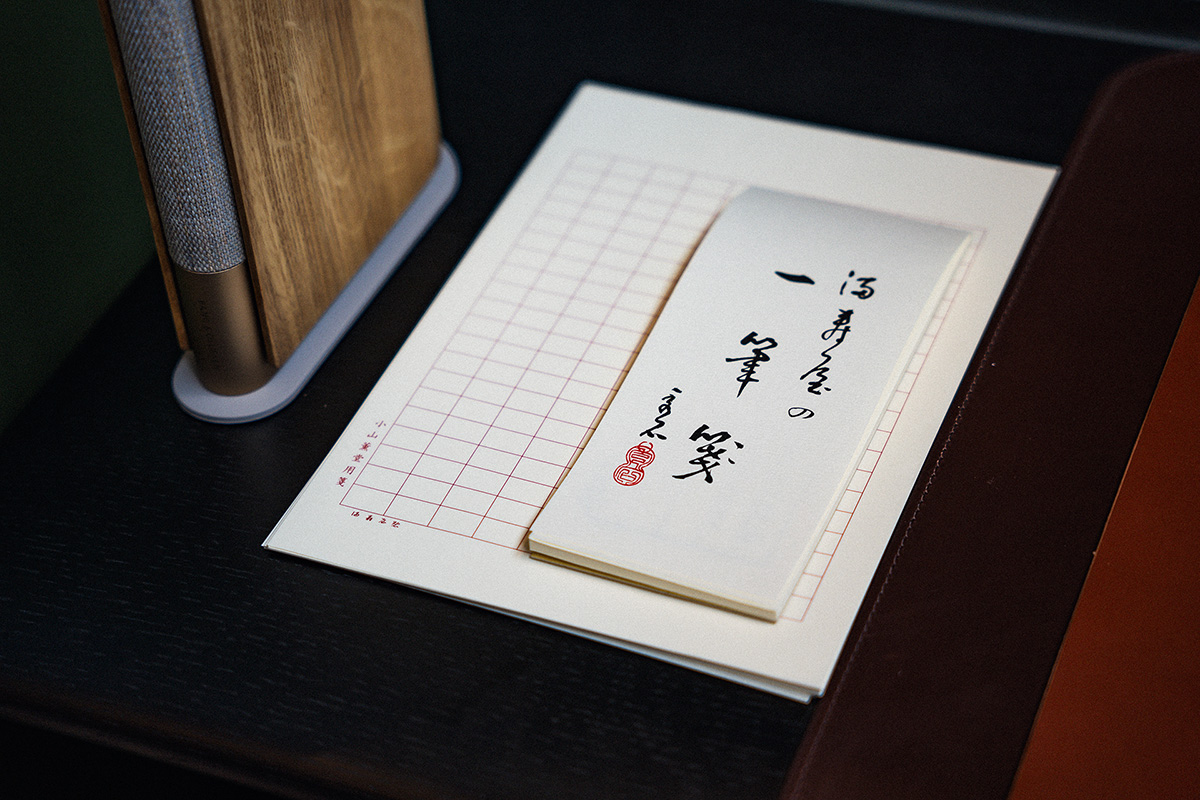 満寿屋の
一筆箋
小山薫堂用箋